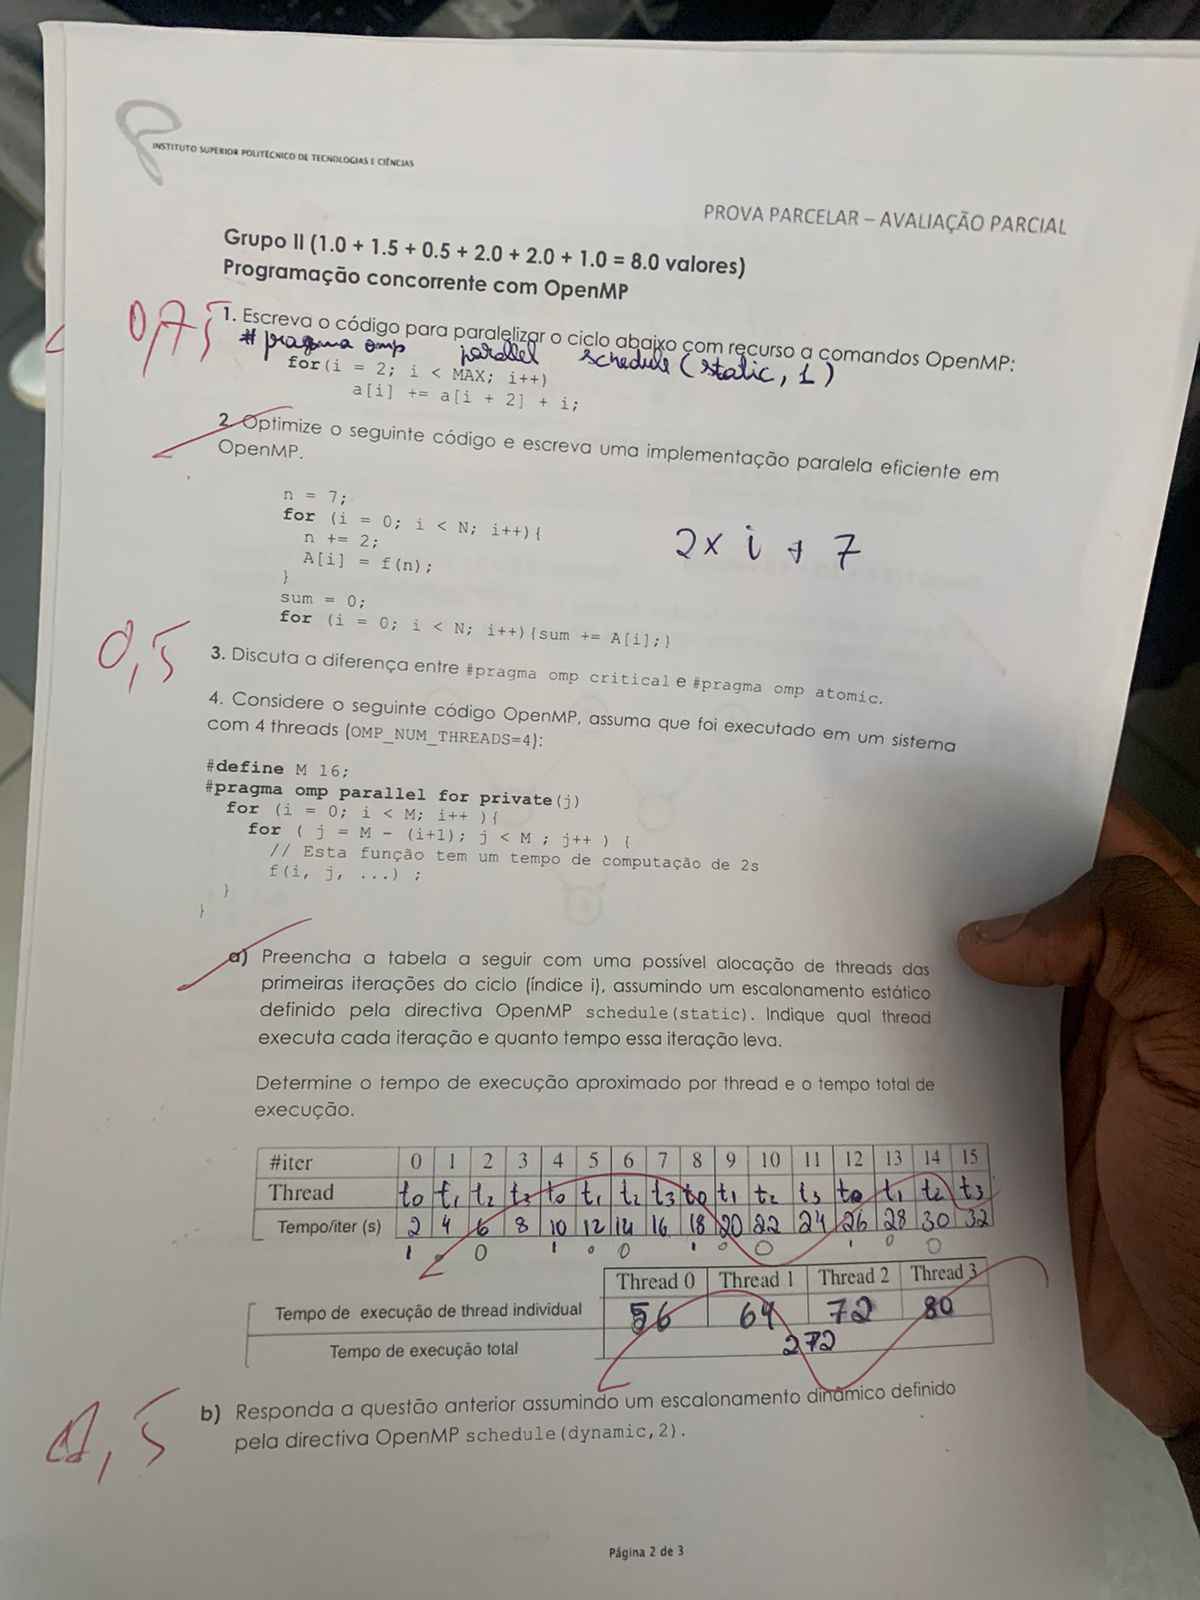 INSTITUTO SUPERIOR POLITÉCNICO DE TECNOLOGIAS E CIÊNCIAS
PROVA PARCELAR – AVALIAÇÃO PARCIAL
Grupo II (1.0 + 1.5 + 0.5 + 2.0 + 2.0 + 1.0 = 8.0 valores)
Programação concorrente com OpenMP
0,75
1. Escreva o código para paralelizar o ciclo abaixo com recurso a comandos OpenMP:
# pragma omp parallel schedule (static, 1)
for(i = 2; i < MAX; i++)
a[i] += a[i + 2] + i;
2. Optimize o seguinte código e escreva uma implementação paralela eficiente em
OpenMP.
n = 7;
for (i = 0; i < N; i++){
n += 2;
A[i] = f(n);
}
2x i + 7
sum = 0;
for (i = 0; i < N; i++){sum += A[i];}
0,5
3. Discuta a diferença entre #pragma omp critical e #pragma omp atomic.
4. Considere o seguinte código OpenMP, assuma que foi executado em um sistema
com 4 threads (OMP_NUM_THREADS=4):
#define M 16;
#pragma omp parallel for private(j)
for (i = 0; i < M; i++ ){
for ( j = M - (i+1); j < M ; j++ ) {
// Esta função tem um tempo de computação de 2s
f(i, j, ...) ;
}
}
a) Preencha a tabela a seguir com uma possível alocação de threads das
primeiras iterações do ciclo (índice i), assumindo um escalonamento estático
definido pela directiva OpenMP schedule(static). Indique qual thread
executa cada iteração e quanto tempo essa iteração leva.
Determine o tempo de execução aproximado por thread e o tempo total de
execução.
#iter 0 1 2 3 4 5 6 7 8 9 10 11 12 13 14 15
Thread t0 t1 t2 t3 t0 t1 t2 t3 t0 t1 t2 t3 t0 t1 t2 t3
Tempo/iter (s) 2 4 6 8 10 12 14 16 18 20 22 24 26 28 30 32
1 0 0 1 0 0 1 0 0 1 0 0
Thread 0 Thread 1 Thread 2 Thread 3
Tempo de execução de thread individual 56 64 72 80
Tempo de execução total 272
b) Responda a questão anterior assumindo um escalonamento dinâmico definido
pela directiva OpenMP schedule(dynamic,2).
Página 2 de 3